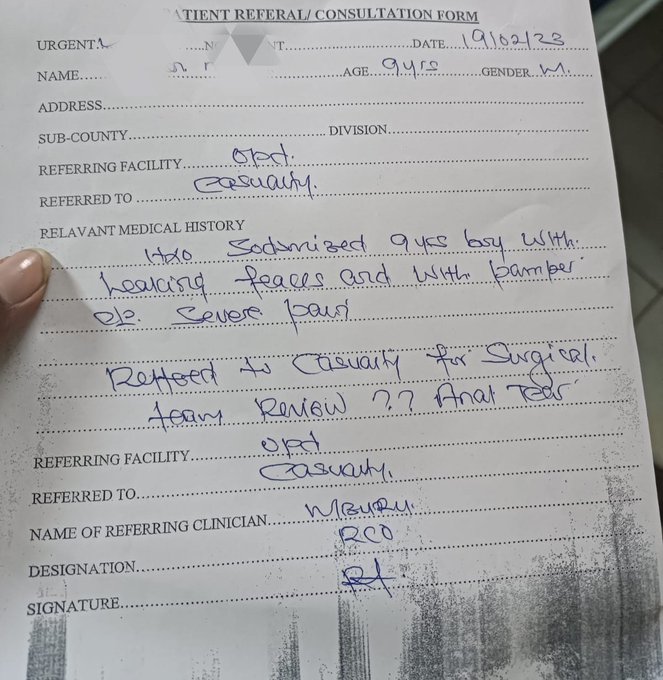 ATIENT REFERAL/ CONSULTATION FORM
URGENT DATE 19/02/23
NAME AGE 9yrs GENDER M.
ADDRESS
SUB-COUNTY DIVISION
REFERRING FACILITY opd.
REFERRED TO Casualty.
RELAVANT MEDICAL HISTORY
Hxo Sodomized 9yrs boy with
leaking feaces and with pamper
Severe pain
to Casualty for Surgical.
team Review ?? Anal Tear
REFERRING FACILITY opd
REFERRED TO Casualty.
NAME OF REFERRING CLINICIAN MBURU.
DESIGNATION RCO
SIGNATURE